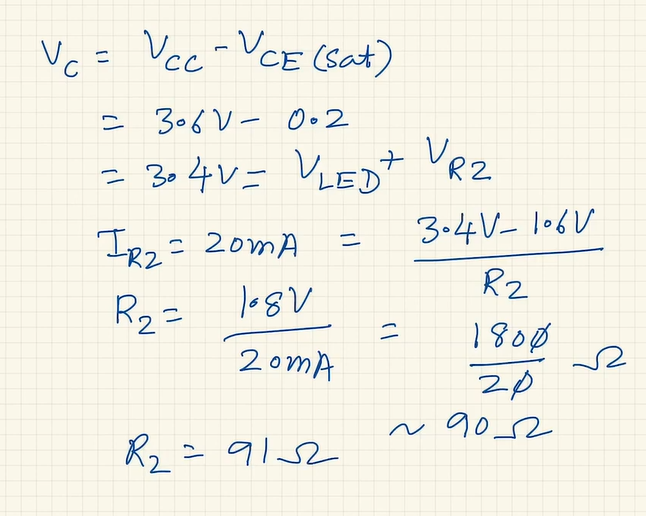 V_C = V_CC - V_CE (sat)
= 3.6V - 0.2
= 3.4V = V_LED + V_R2
I_R2 = 20mA = (3.4V - 1.6V) / R2
R_2 = 1.8V / 20mA = 1800 / 20 Ω
~ 90Ω
R_2 = 91Ω